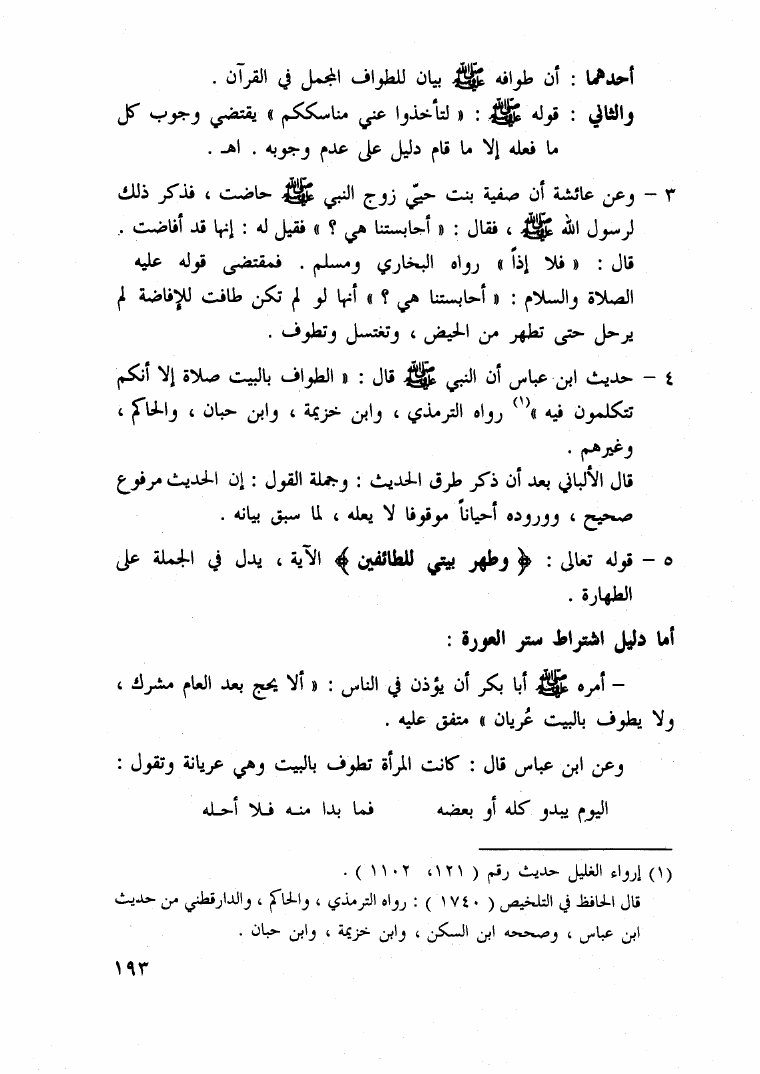 أحدهما : أن طوافه ﷺ بيان للطواف المجمل في القرآن .
والثاني : قوله ﷺ : « لتأخذوا عني مناسككم » يقتضي وجوب كل
ما فعله إلا ما قام دليل على عدم وجوبه . اهـ .
٣ – وعن عائشة أن صفية بنت حيي زوج النبي ﷺ حاضت ، فذكر ذلك
لرسول الله ﷺ ، فقال : « أحابستنا هي ؟ » فقيل له : إنها قد أفاضت .
قال : « فلا إذاً » رواه البخاري ومسلم . فمقتضى قوله عليه
الصلاة والسلام : « أحابستنا هي ؟ » أنها لو لم تكن طافت للإفاضة لم
يرحل حتى تطهر من الحيض ، وتغتسل وتطوف .
٤ – حديث ابن عباس أن النبي ﷺ قال : « الطواف بالبيت صلاة إلا أنكم
تتكلمون فيه »(١) رواه الترمذي ، وابن خزيمة ، وابن حبان ، والحاكم ،
وغيرهم .
قال الألباني بعد أن ذكر طرق الحديث : وجملة القول : إن الحديث مرفوع
صحيح ، ووروده أحياناً موقوفا لا يعله ، لما سبق بيانه .
٥ – قوله تعالى : ﴿ وطهر بيتي للطائفين ﴾ الآية ، يدل في الجملة على
الطهارة .
أما دليل اشتراط ستر العورة :
– أمره ﷺ أبا بكر أن يؤذن في الناس : « ألا يحج بعد العام مشرك ،
ولا يطوف بالبيت عُريان » متفق عليه .
وعن ابن عباس قال : كانت المرأة تطوف بالبيت وهي عريانة وتقول :
اليوم يبدو كله أو بعضه فما بدا منـه فـلا أحـله
(١) إرواء الغليل حديث رقم ( ١٢١، ١١٠٢ ) .
قال الحافظ في التلخيص ( ١٧٤٠ ) : رواه الترمذي ، والحاكم ، والدارقطني من حديث
ابن عباس ، وصححه ابن السكن ، وابن خزيمة ، وابن حبان .
١٩٣